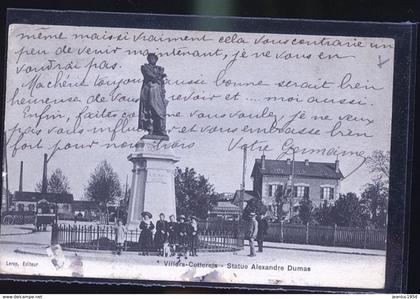 même mais si vraiment cela vous contrarie un
peu de venir maintenant, je ne vous en
voudrai pas.
Ma chérie toujours aussi bonne serait bien
heureuse de vous revoir et .... moi aussi
Enfin, faites comme vous voulez, je ne veux
pas vous influencer et vous embrasse bien
fort pour nous trois Votre Germaine
Leroy, Éditeur
Villers-Cotterets - Statue Alexandre Dumas